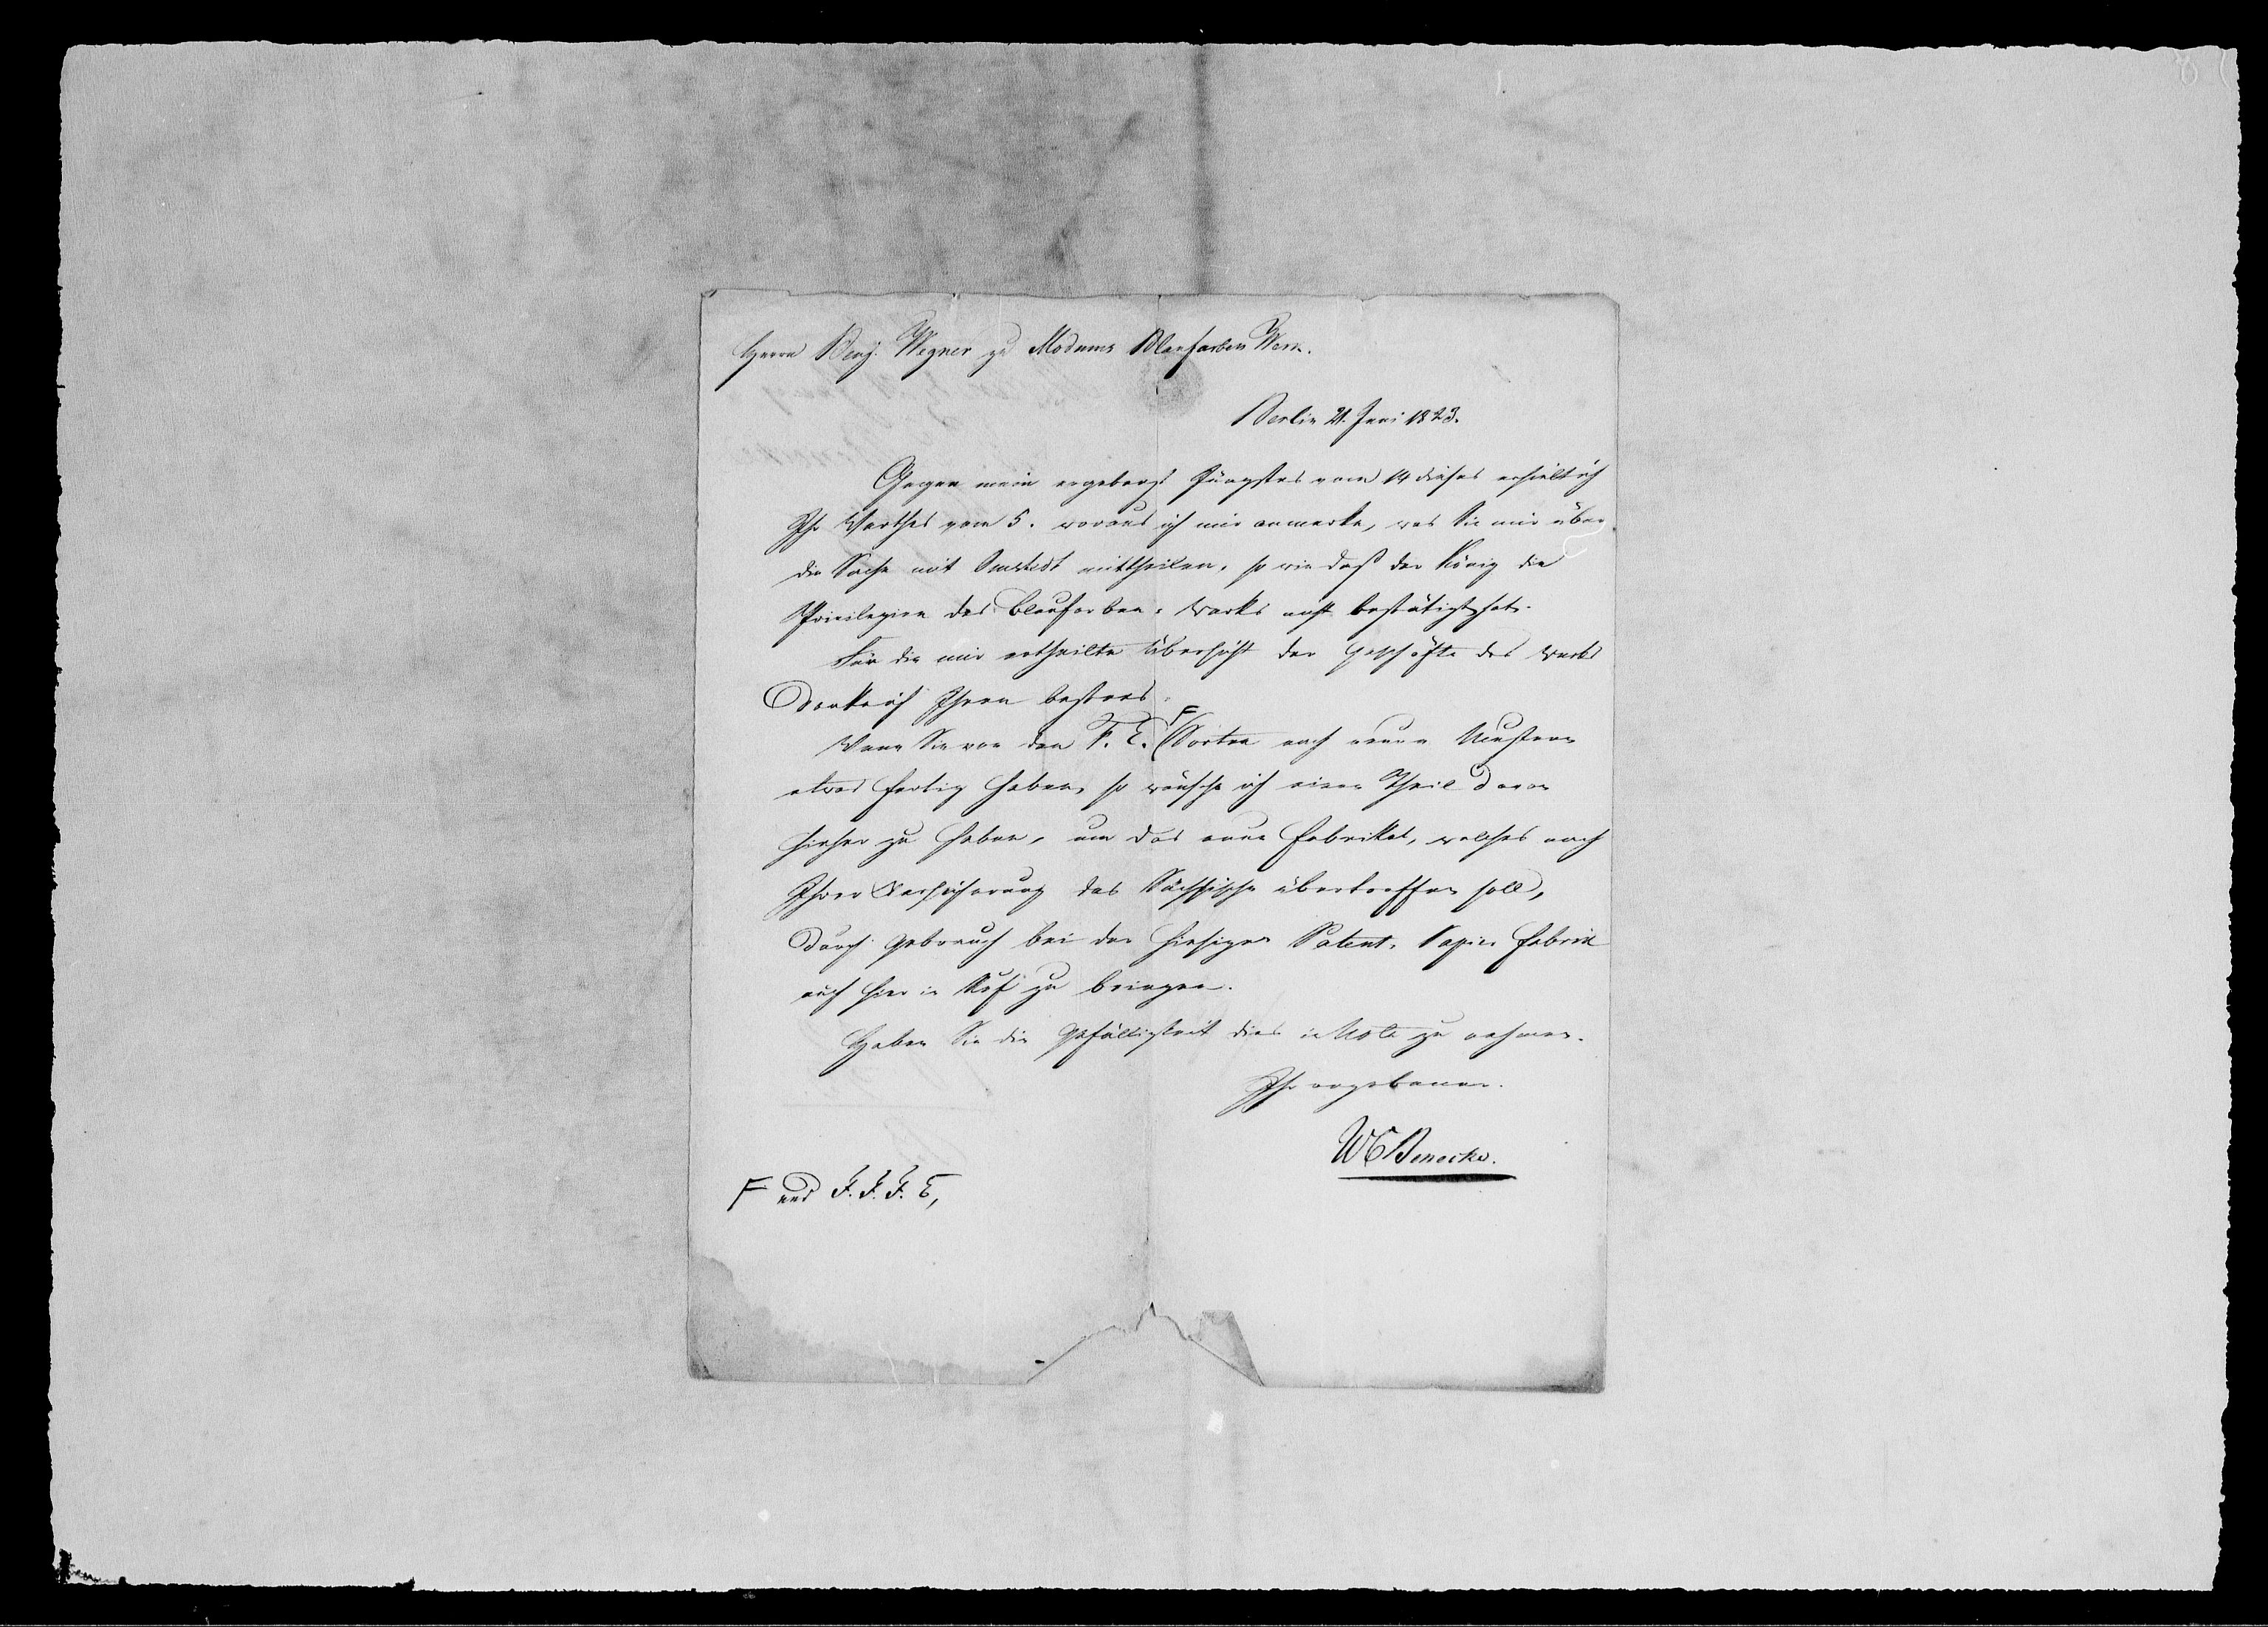 Herrn Benj. Wegner zu Modums Blaufarben Werk.
Berlin 21. Juni 1823.
Gegen mein ergebenst Jüngstes vom 14 dieses erhielt ich
Ihr Werthes vom 5. woraus ich mir anmerke, was Sie mir über
die Sache mit Omstedt mittheilen, so wie daß der König die
Privilegien des Blaufarben-Werks nicht bestätigt hat.
Für die mir ertheilte Übersicht der Geschäfte des Werks
danke ich Ihnen bestens.
Wenn Sie von den F. E. F Sorten nach neuen Mustern
etwas fertig haben, so wünsche ich einen Theil davon
hieher zu haben, um das neue Fabrikat, welches nach
Ihrer Versicherung das Sächsische übertreffen soll,
durch Gebrauch bei der hiesigen Patent-Papier Fabrik
auch hier in Ruf zu bringen.
Haben Sie die Gefälligkeit dies in Nota zu nehmen.
Ihr ergebener.
WC Benecke.
F und F. F. F. E,